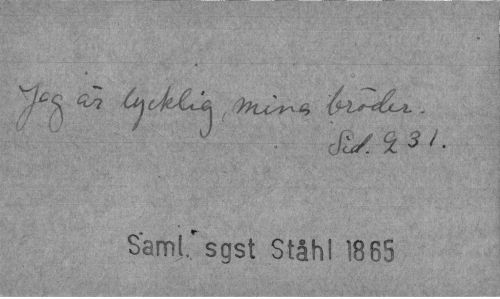 Jag är lycklig, mina bröder.
Sid. 231.
Saml. sgst Ståhl 1865